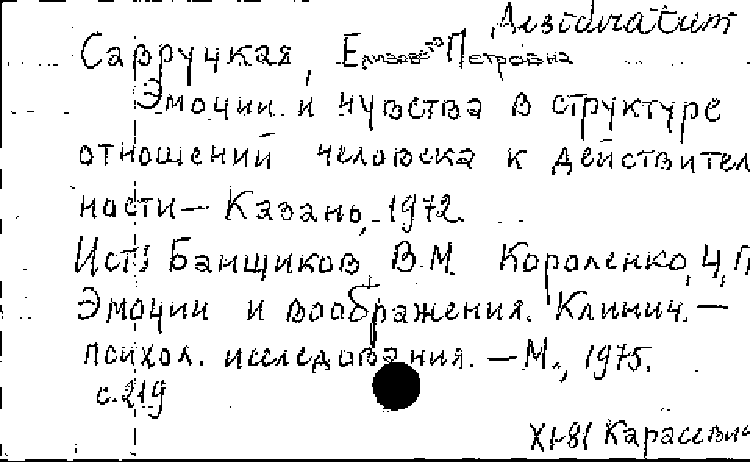 Desideratum
Савруцкая, Елизавета Петровна
Эмоции и чувства в структуре
отношений человека к действитель
ности — Казань, 1972.
Ист: Банщиков В.М. Короленко, Ц.П
Эмоции и воображения. Клинич. —
психол. исследования. — М., 1975.
с. 219
XI-81 Карасевич